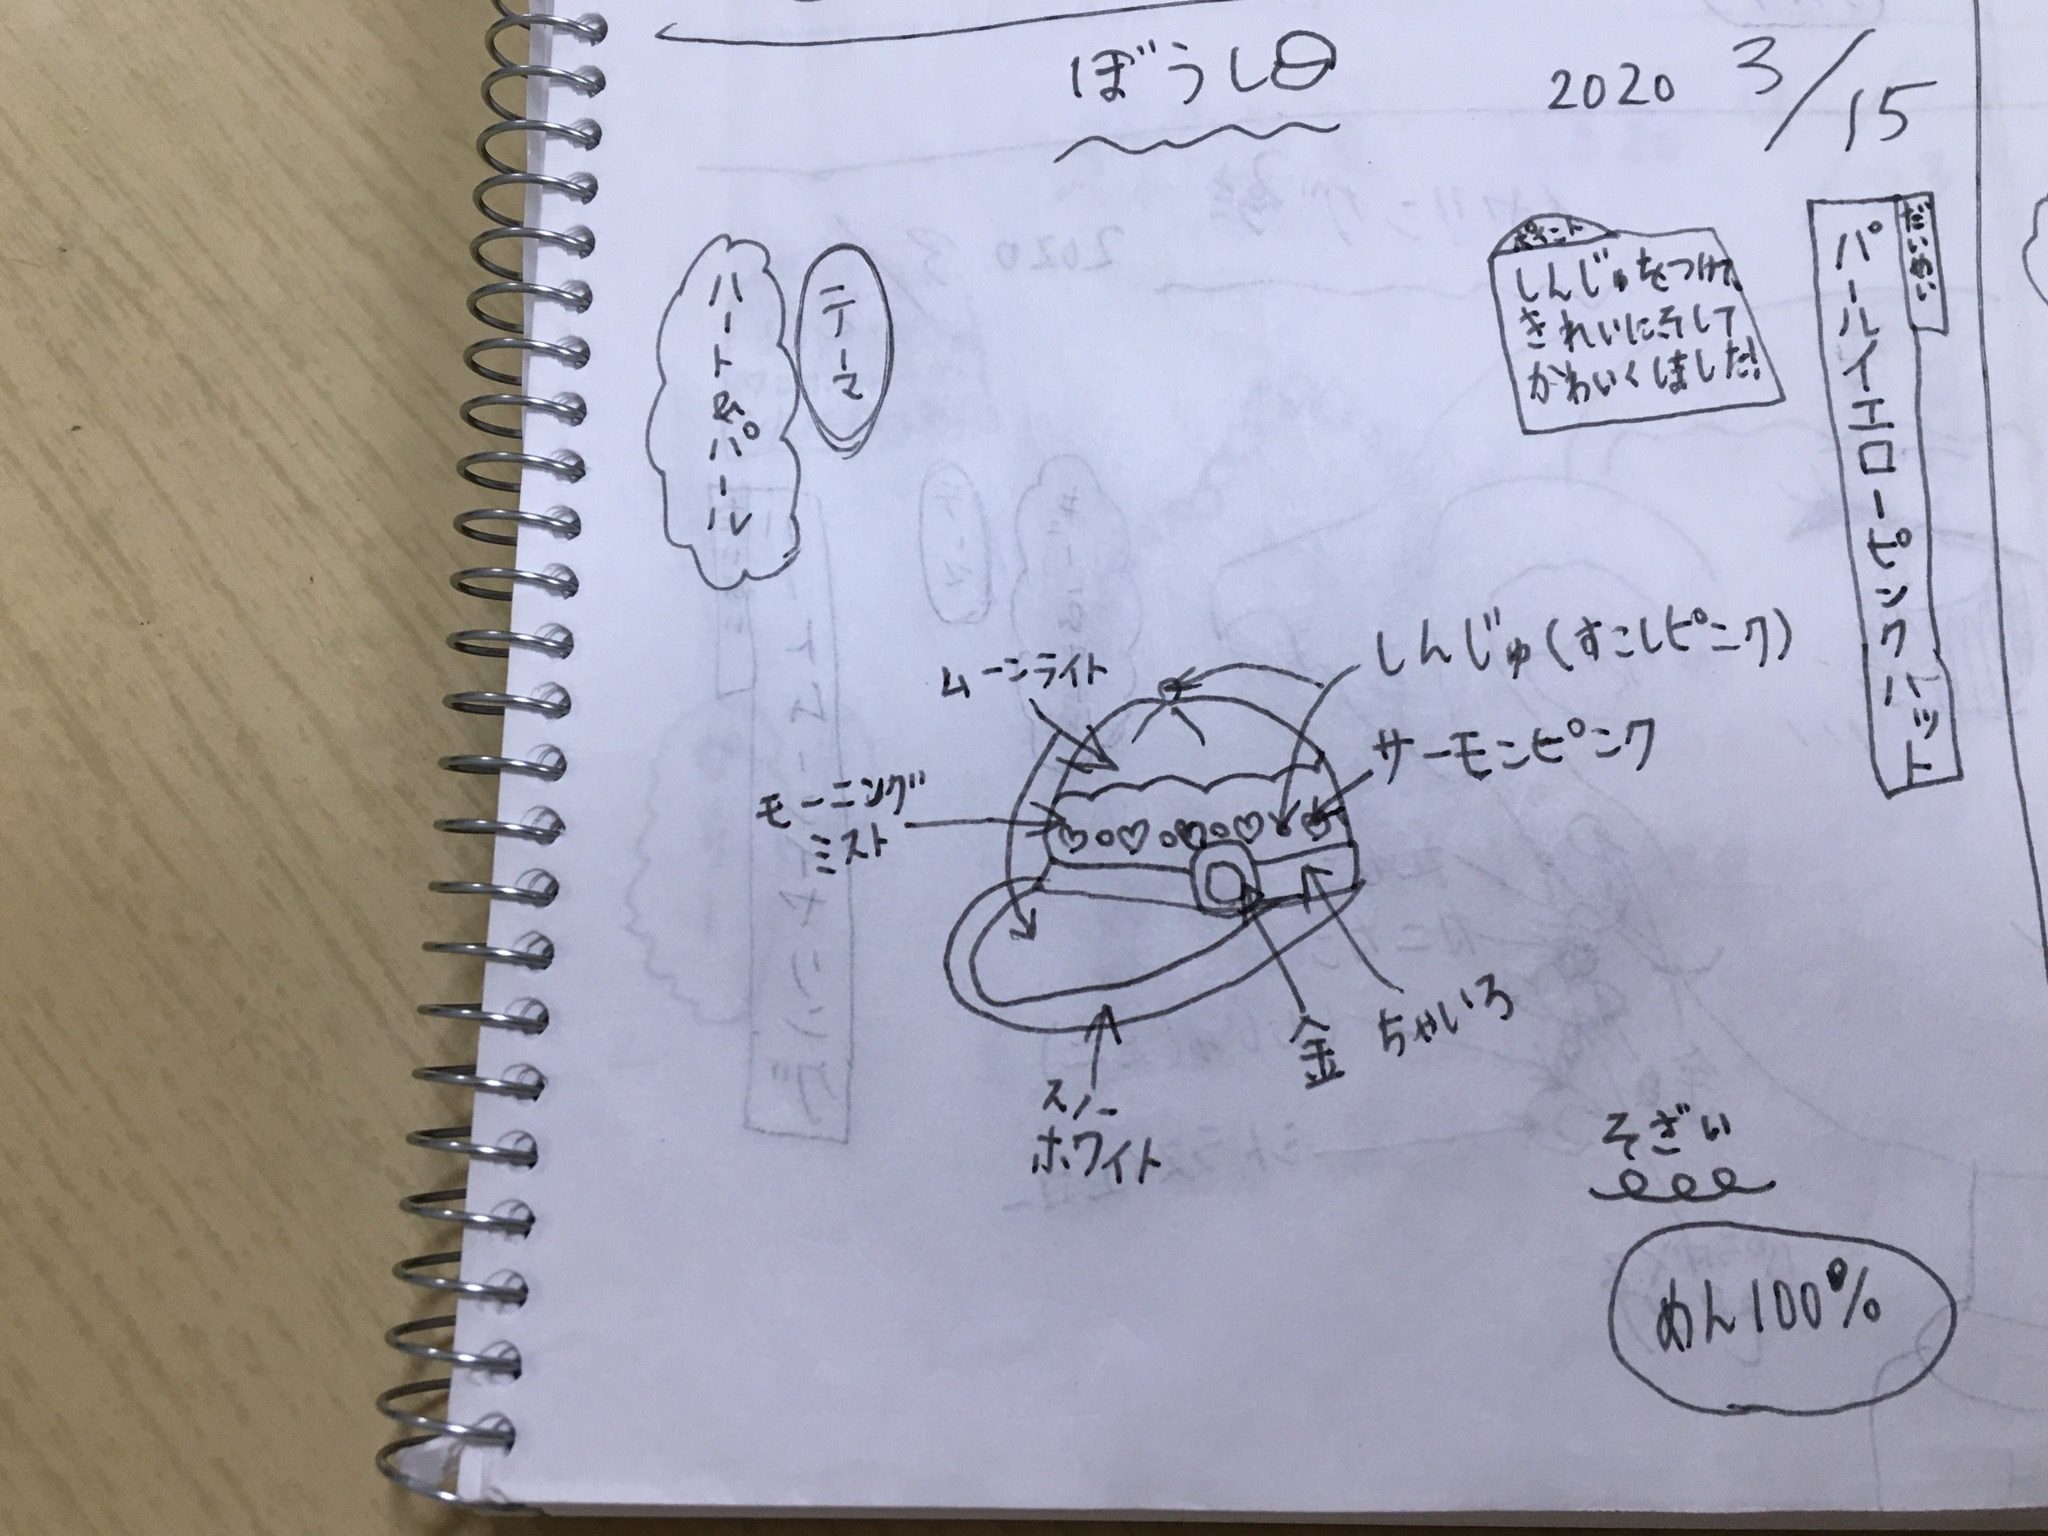 ぼうし
2020 3/15
だいめい
パールイエローピンクハット
ポイント
しんじゅをつけて、
きれいにそして
かわいくしました!
テーマ
ハート&パール
ムーンライト
しんじゅ(すこしピンク)
サーモンピンク
モーニング
ミスト
スノー
ホワイト
金
ちゃいろ
そざい
めん100%